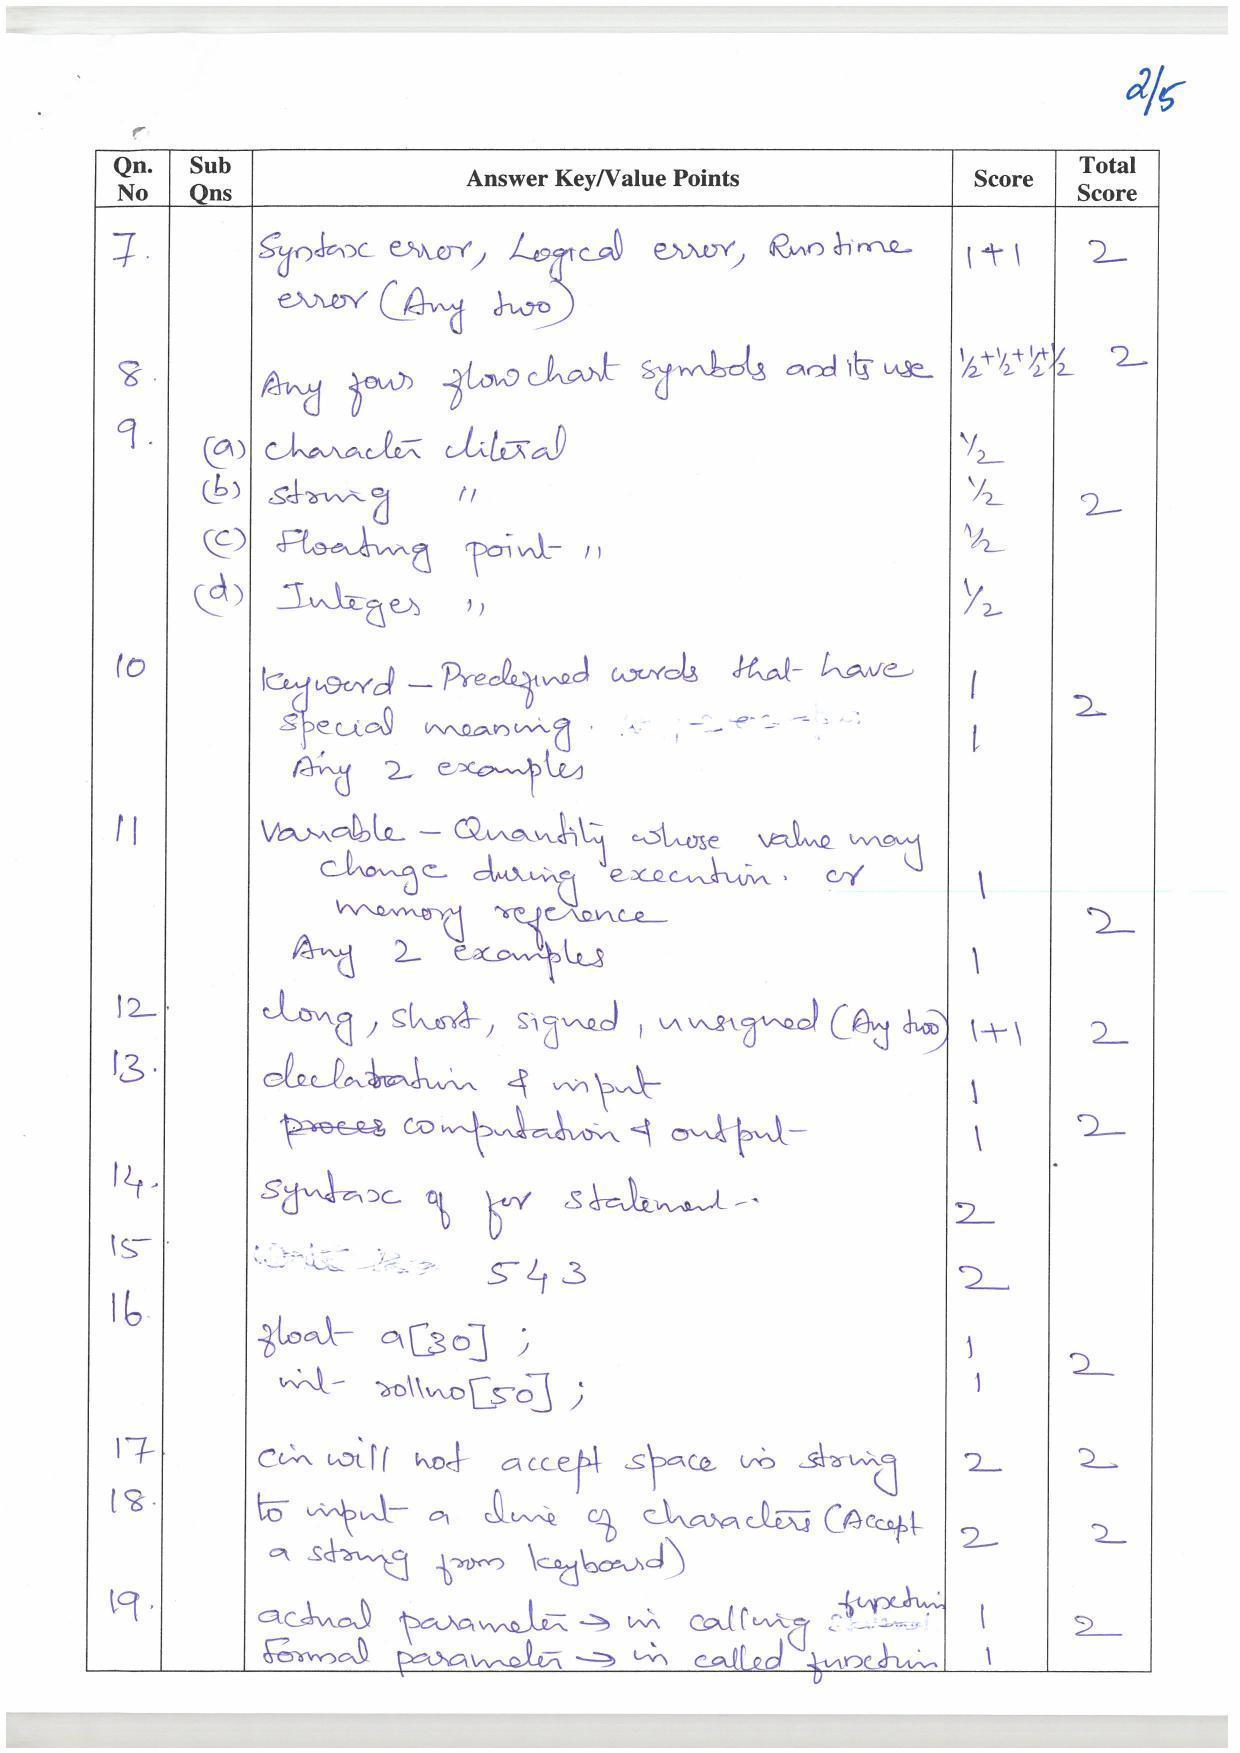 2/5
Qn. No Sub Qns Answer Key/Value Points Score Total Score
7. Syntax error, Logical error, Runtime 1+1 2
error (Any two)
8. Any four flowchart symbols and its use ½+½+½+½ 2
9. (a) character literal ½
(b) string " ½ 2
(c) Floating point " ½
(d) Integer " ½
10 Keyword – Predefined words that have 1
special meaning. 2
Any 2 examples 1
11 Variable – Quantity whose value may
change during execution. or 1
memory reference 2
Any 2 examples 1
12 long, short, signed, unsigned (Any two) 1+1 2
13. declaration & input 1
proces computation & output 1 2
14. syntax of for statement 2
15 543 2
16 float a[30] ; 1
int rollno[50] ; 1 2
17 cin will not accept space in string 2 2
18. to input a line of characters (Accept 2 2
a string from keyboard)
19. actual parameter → in calling function 1 2
formal parameter → in called function 1